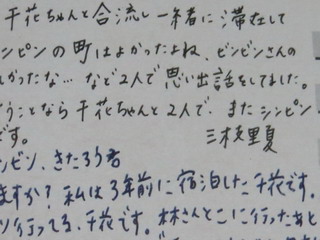 千花ちゃんと合流し一緒に滞在して
ンピンの町はよかったよね、ビンビンさんの
しかったな… など2人で思い出話をしてました。
うことなら千花ちゃんと2人で、また シンピン
です。
三枝里夏
ンビン、きたろう君
ますか? 私は3年前に宿泊した千花です。
行ってる、千花です。林さんとこに行ったあと